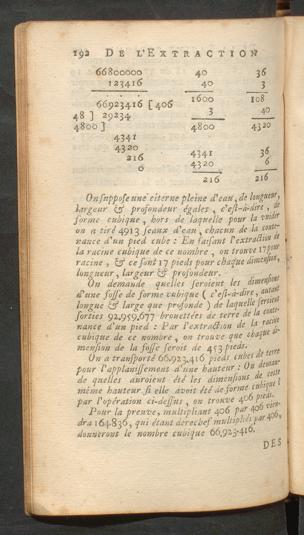 192 DE L'EXTRACTION
66800000 40 36
123416 40 3
66923416 [406 1600 108
48 ] 29234 3 40
4800 ] 4800 4320
4341
4320 4341 36
216 4320 6
0 216 216
On suppose une citerne pleine d'eau, de longueur,
largeur & profondeur égales, c'est-à-dire, de
forme cubique, hors de laquelle pour la vuider
on a tiré 4913 seaux d'eau, chacun de la conte-
nance d'un pied cube : En faisant l'extraction de
la racine cubique de ce nombre, on trouve 17 pour
racine, & ce sont 17 pieds pour chaque dimension,
longueur, largeur & profondeur.
On demande quelles seroient les dimensions
d'une fosse de forme cubique (c'est-à-dire, autant
longue & large que profonde) de laquelle seroient
sorties 92,959,677 brouettées de terre de la conte-
nance d'un pied : Par l'extraction de la racine
cubique de ce nombre, on trouve que chaque di-
mension de la fosse seroit de 453 pieds.
On a transporté 66,923,416 pieds cubes de terre
pour l'applanissement d'une hauteur : On deman-
de quelles auroient été les dimensions de cette
même hauteur si elle avoit été de forme cubique :
par l'opération ci-dessus, on trouve 406 pieds.
Pour la preuve, multipliant 406 par 406 vien-
dra 164,836, qui étant derechef multipliés par 406,
donneront le nombre cubique 66,923,416.
DES